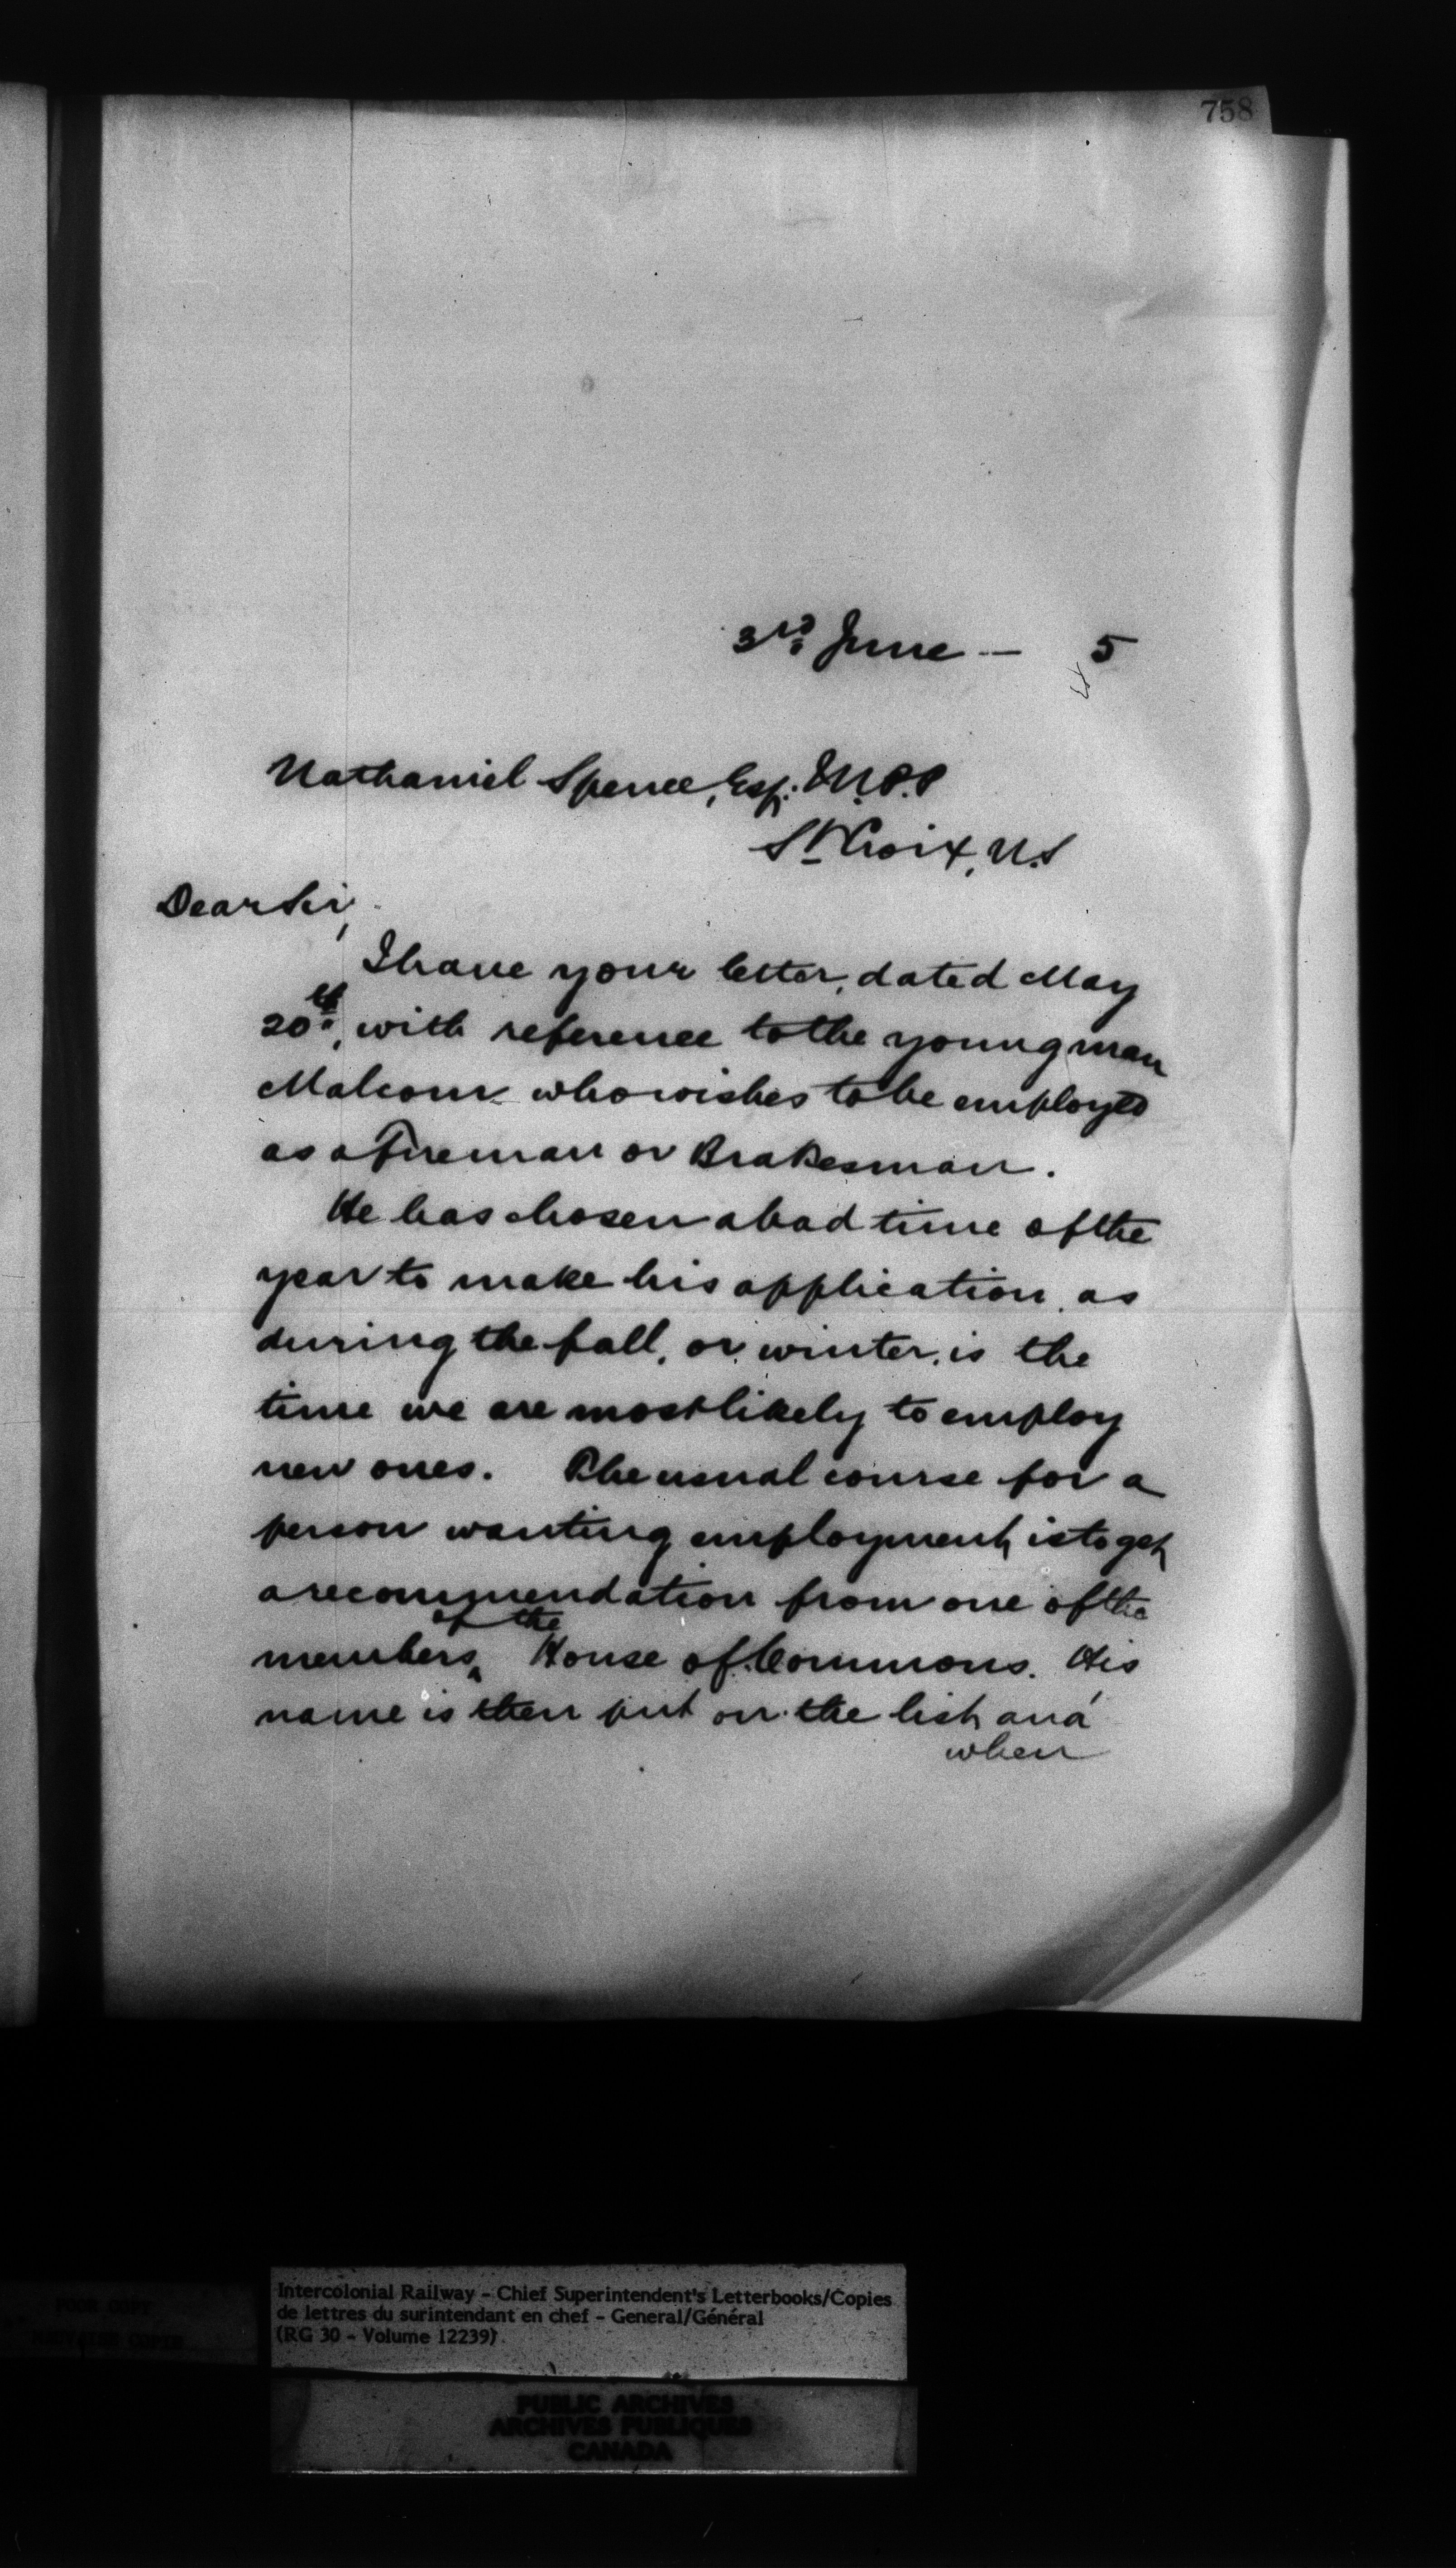 758
3rd June -- 5
Nathaniel Spence, Esq. M.P.P
St Croix, N.S
Dear Sir,
I have your letter, dated May
20th, with reference to the young man
Malcom who wishes to be employed
as a Fireman or Brakesman.
He has chosen a bad time of the
year to make his application, as
during the fall, or winter, is the
time we are most likely to employ
new ones. The usual course for a
person wanting employment, is to get
a recommendation from one of the
of the
members ‸ House of Commons. His
name is then put on the list, and
when
Intercolonial Railway - Chief Superintendent's Letterbooks/Copies
de lettres du surintendant en chef - General/Général
(RG 30 - Volume 12239)
PUBLIC ARCHIVES
ARCHIVES PUBLIQUES
CANADA